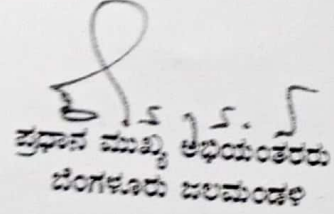 ಪ್ರಧಾನ ಮುಖ್ಯ ಅಭಿಯಂತರರು
ಬೆಂಗಳೂರು ಜಲಮಂಡಳಿ